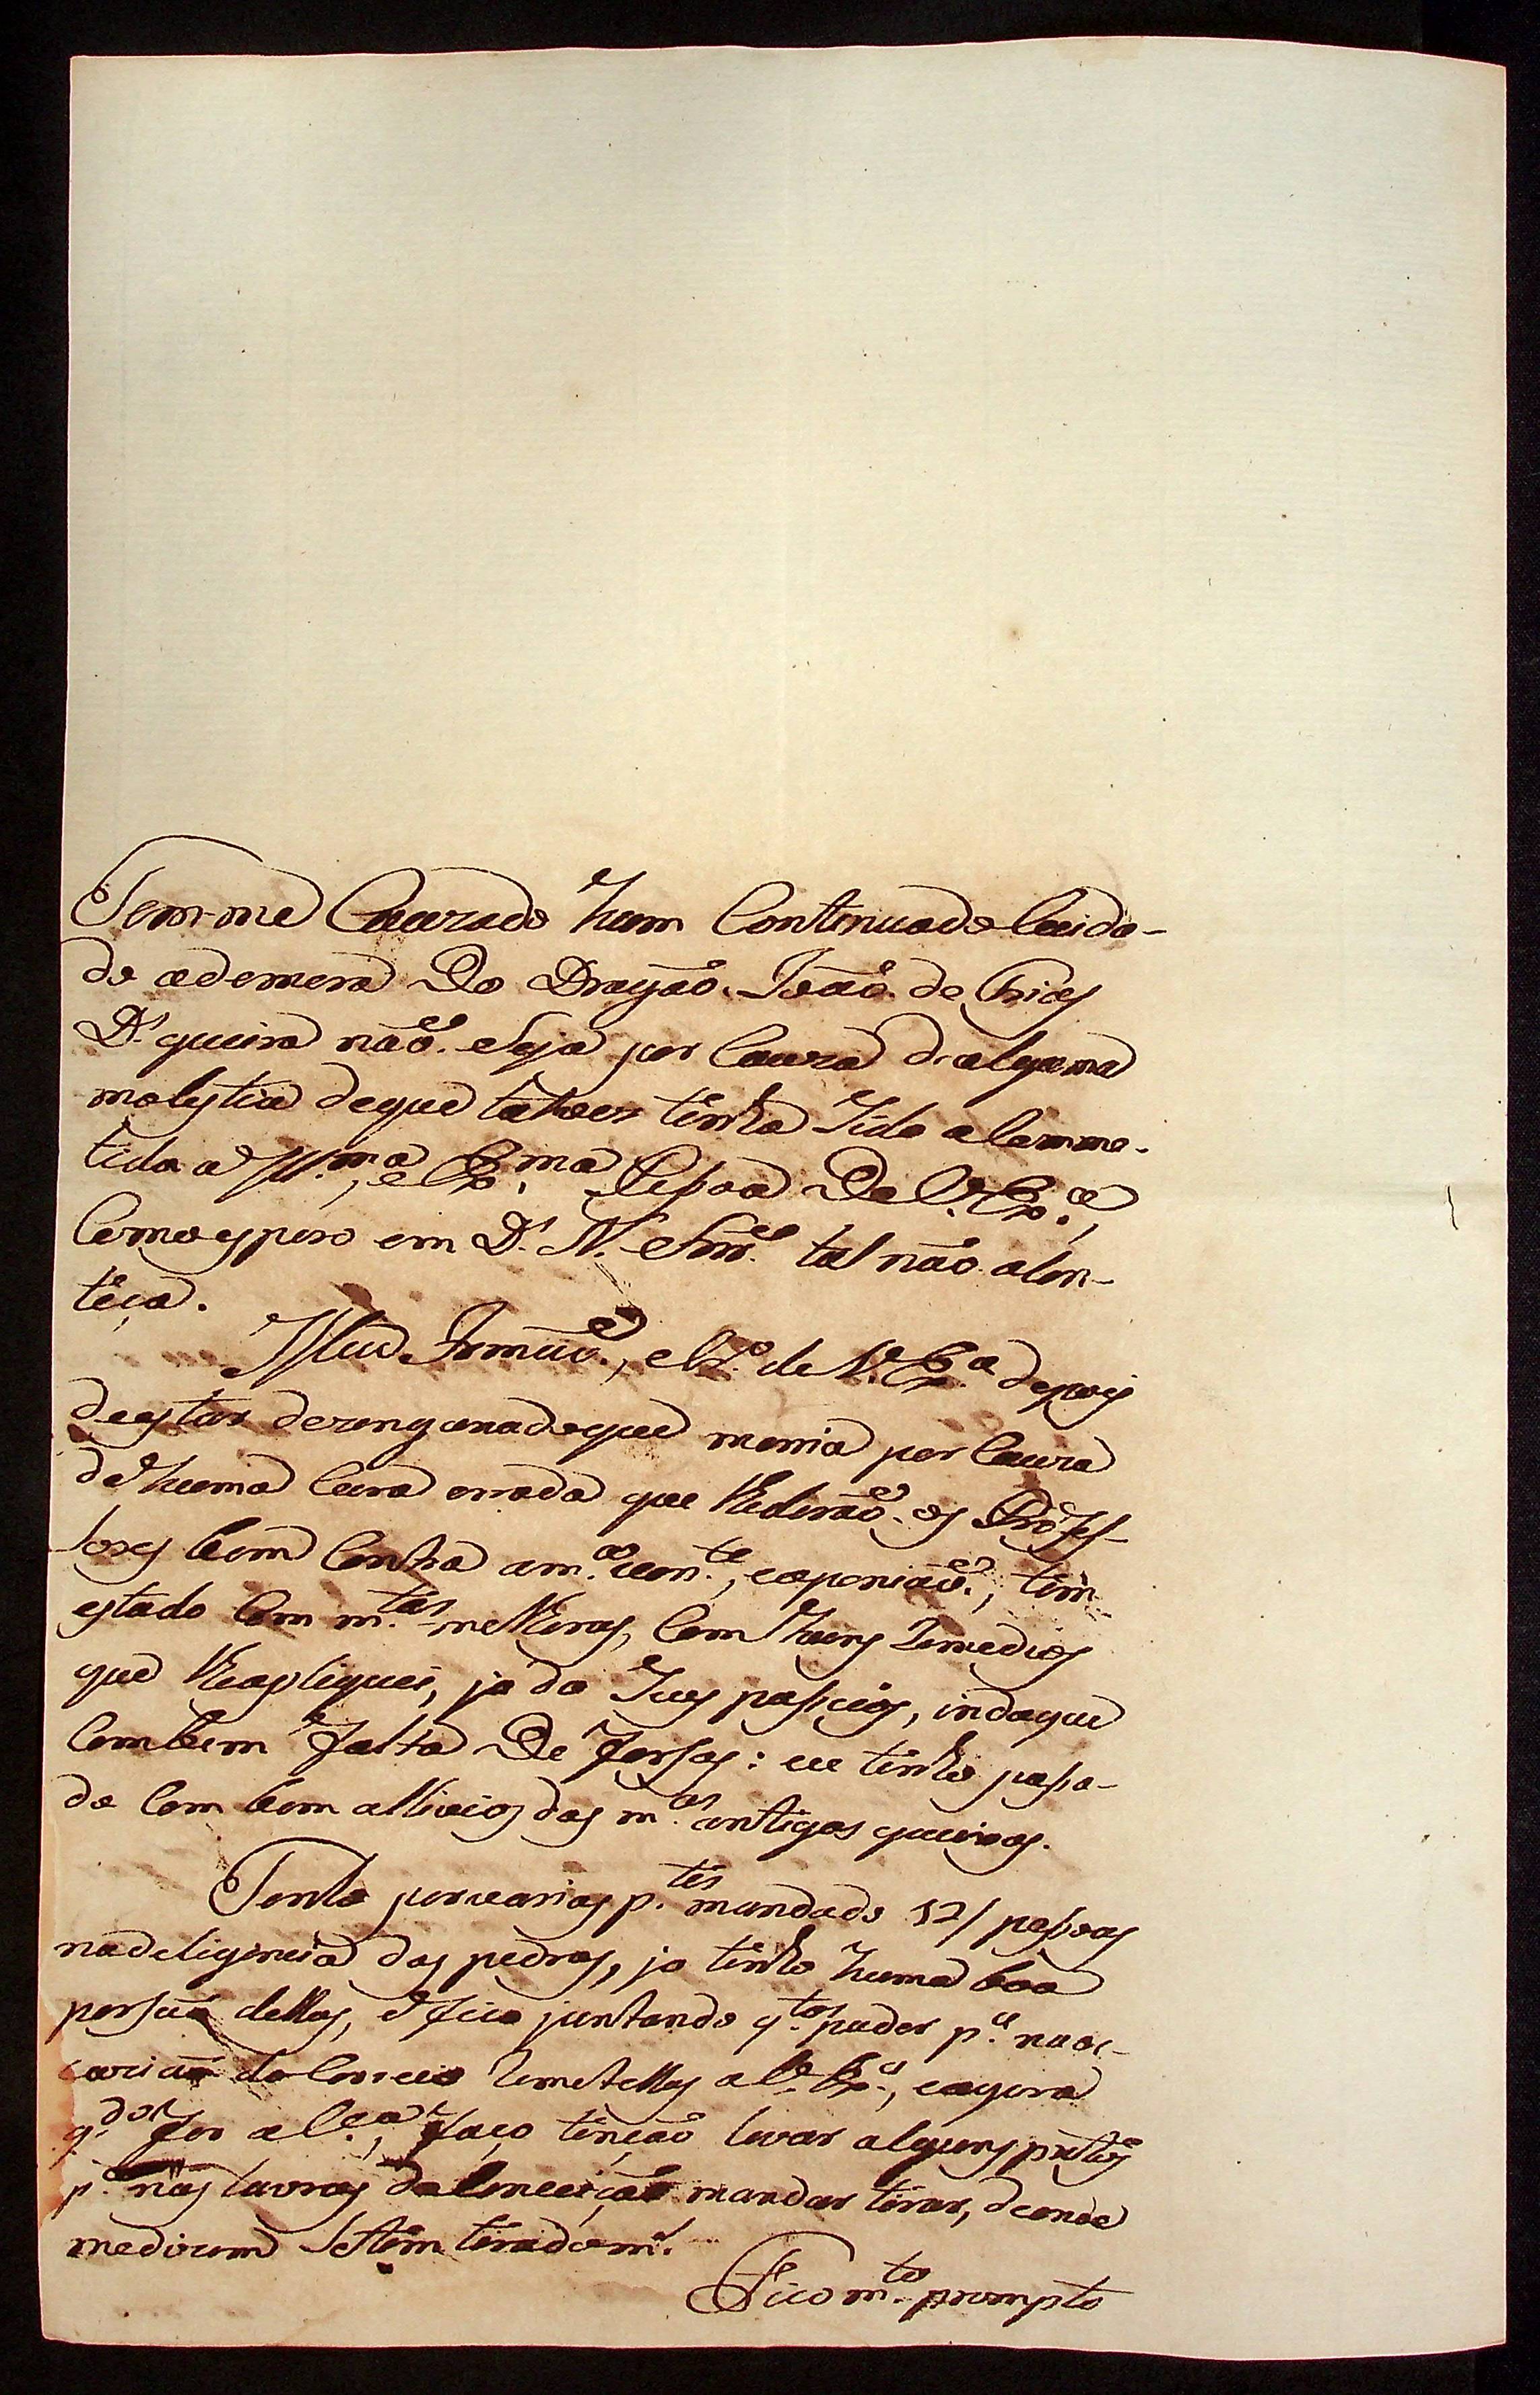 Tem-me Cauzado hum Continuado Cuida-
do ademora Do Dragaõ Joaõ de Frias
D.s queira naõ seja por Cauza dealguma
molestia deque talves tenha sido acomme-
tida a Ill.ma, e Ex.ma Pessoa De V. Ex.a,
Como espero em D.s N. Snr. tal naõ acon-
teça.
Meu Irmaõ, e Cr.o de V. Ex.a depois
deestar dezenganado que morria por Cauza
de huma Cura errada que lhe deraõ os Profes-
sores bem Contra am.a von.te, eopeniaõ, tem
estado Com m.tas melhoras, Com huns Remedios
que lhe apliquei, ja da seus passeios, indaque
Com bem falta De forsas: eu tenho passa-
do Com bem allivios das m.as antigas queixas.
Tenho por varias p.tes mandado 12/ pessoas
nadeligencia das pedras, ja tenho huma boa
porsaõ dellas, e fico juntando q.tas puder p.a na oc-
cariaõ do Correio Remetellas a V. Ex.a, eagora
q.do for a C.a, faço tençaõ levar alguns pretos
p.a nas lavras da Conceiçaõ mandar tirar, deonde
medizem se tem tirado m.s
Fico m.to prompto